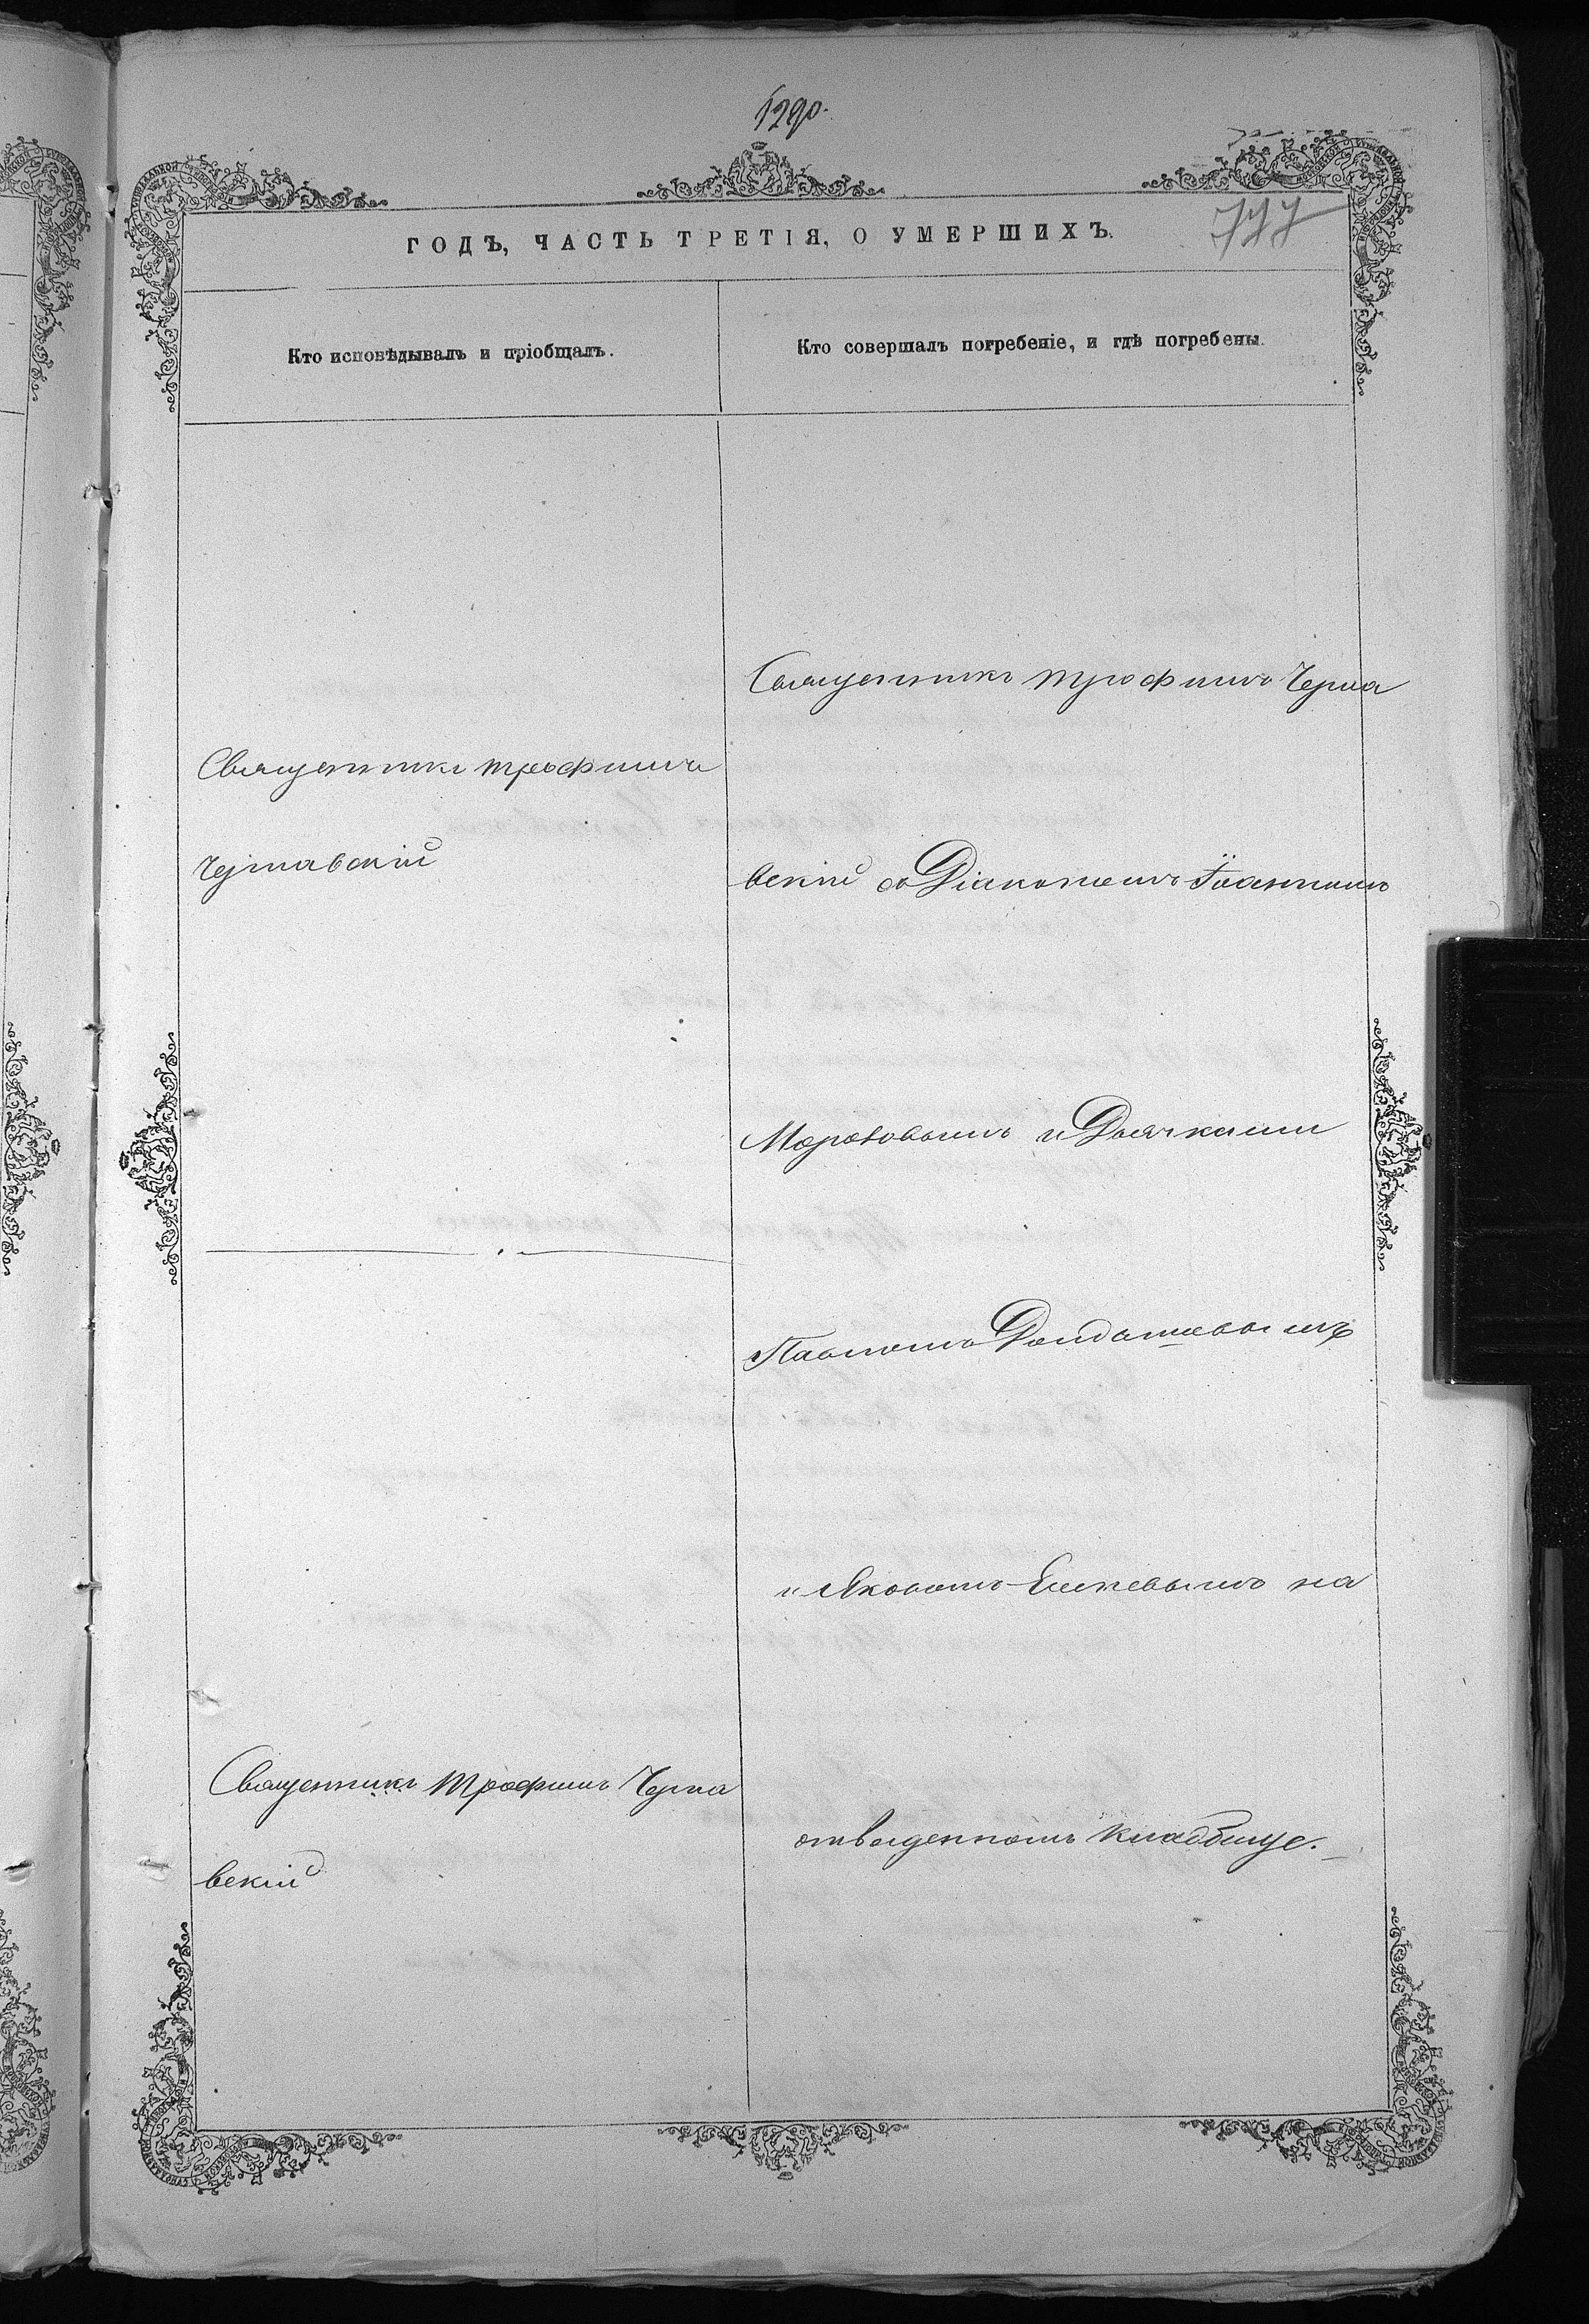 1290.
777
ГОДЪ, ЧАСТЬ ТРЕТІЯ, О УМЕРШИХЪ.
Кто исповѣдывалъ и пріобщалъ.
Кто совершалъ погребеніе, и гдѣ погребены.
Священникъ Трофимъ
Чернавскій
Священникъ Трофимъ Черна
вскій
Священникъ Трофимъ Черна
вскій съ Діакономъ Іоанномъ
Морозовымъ и Дьячками
Павломъ
и Яковомъ на
отведенномъ кладбище.